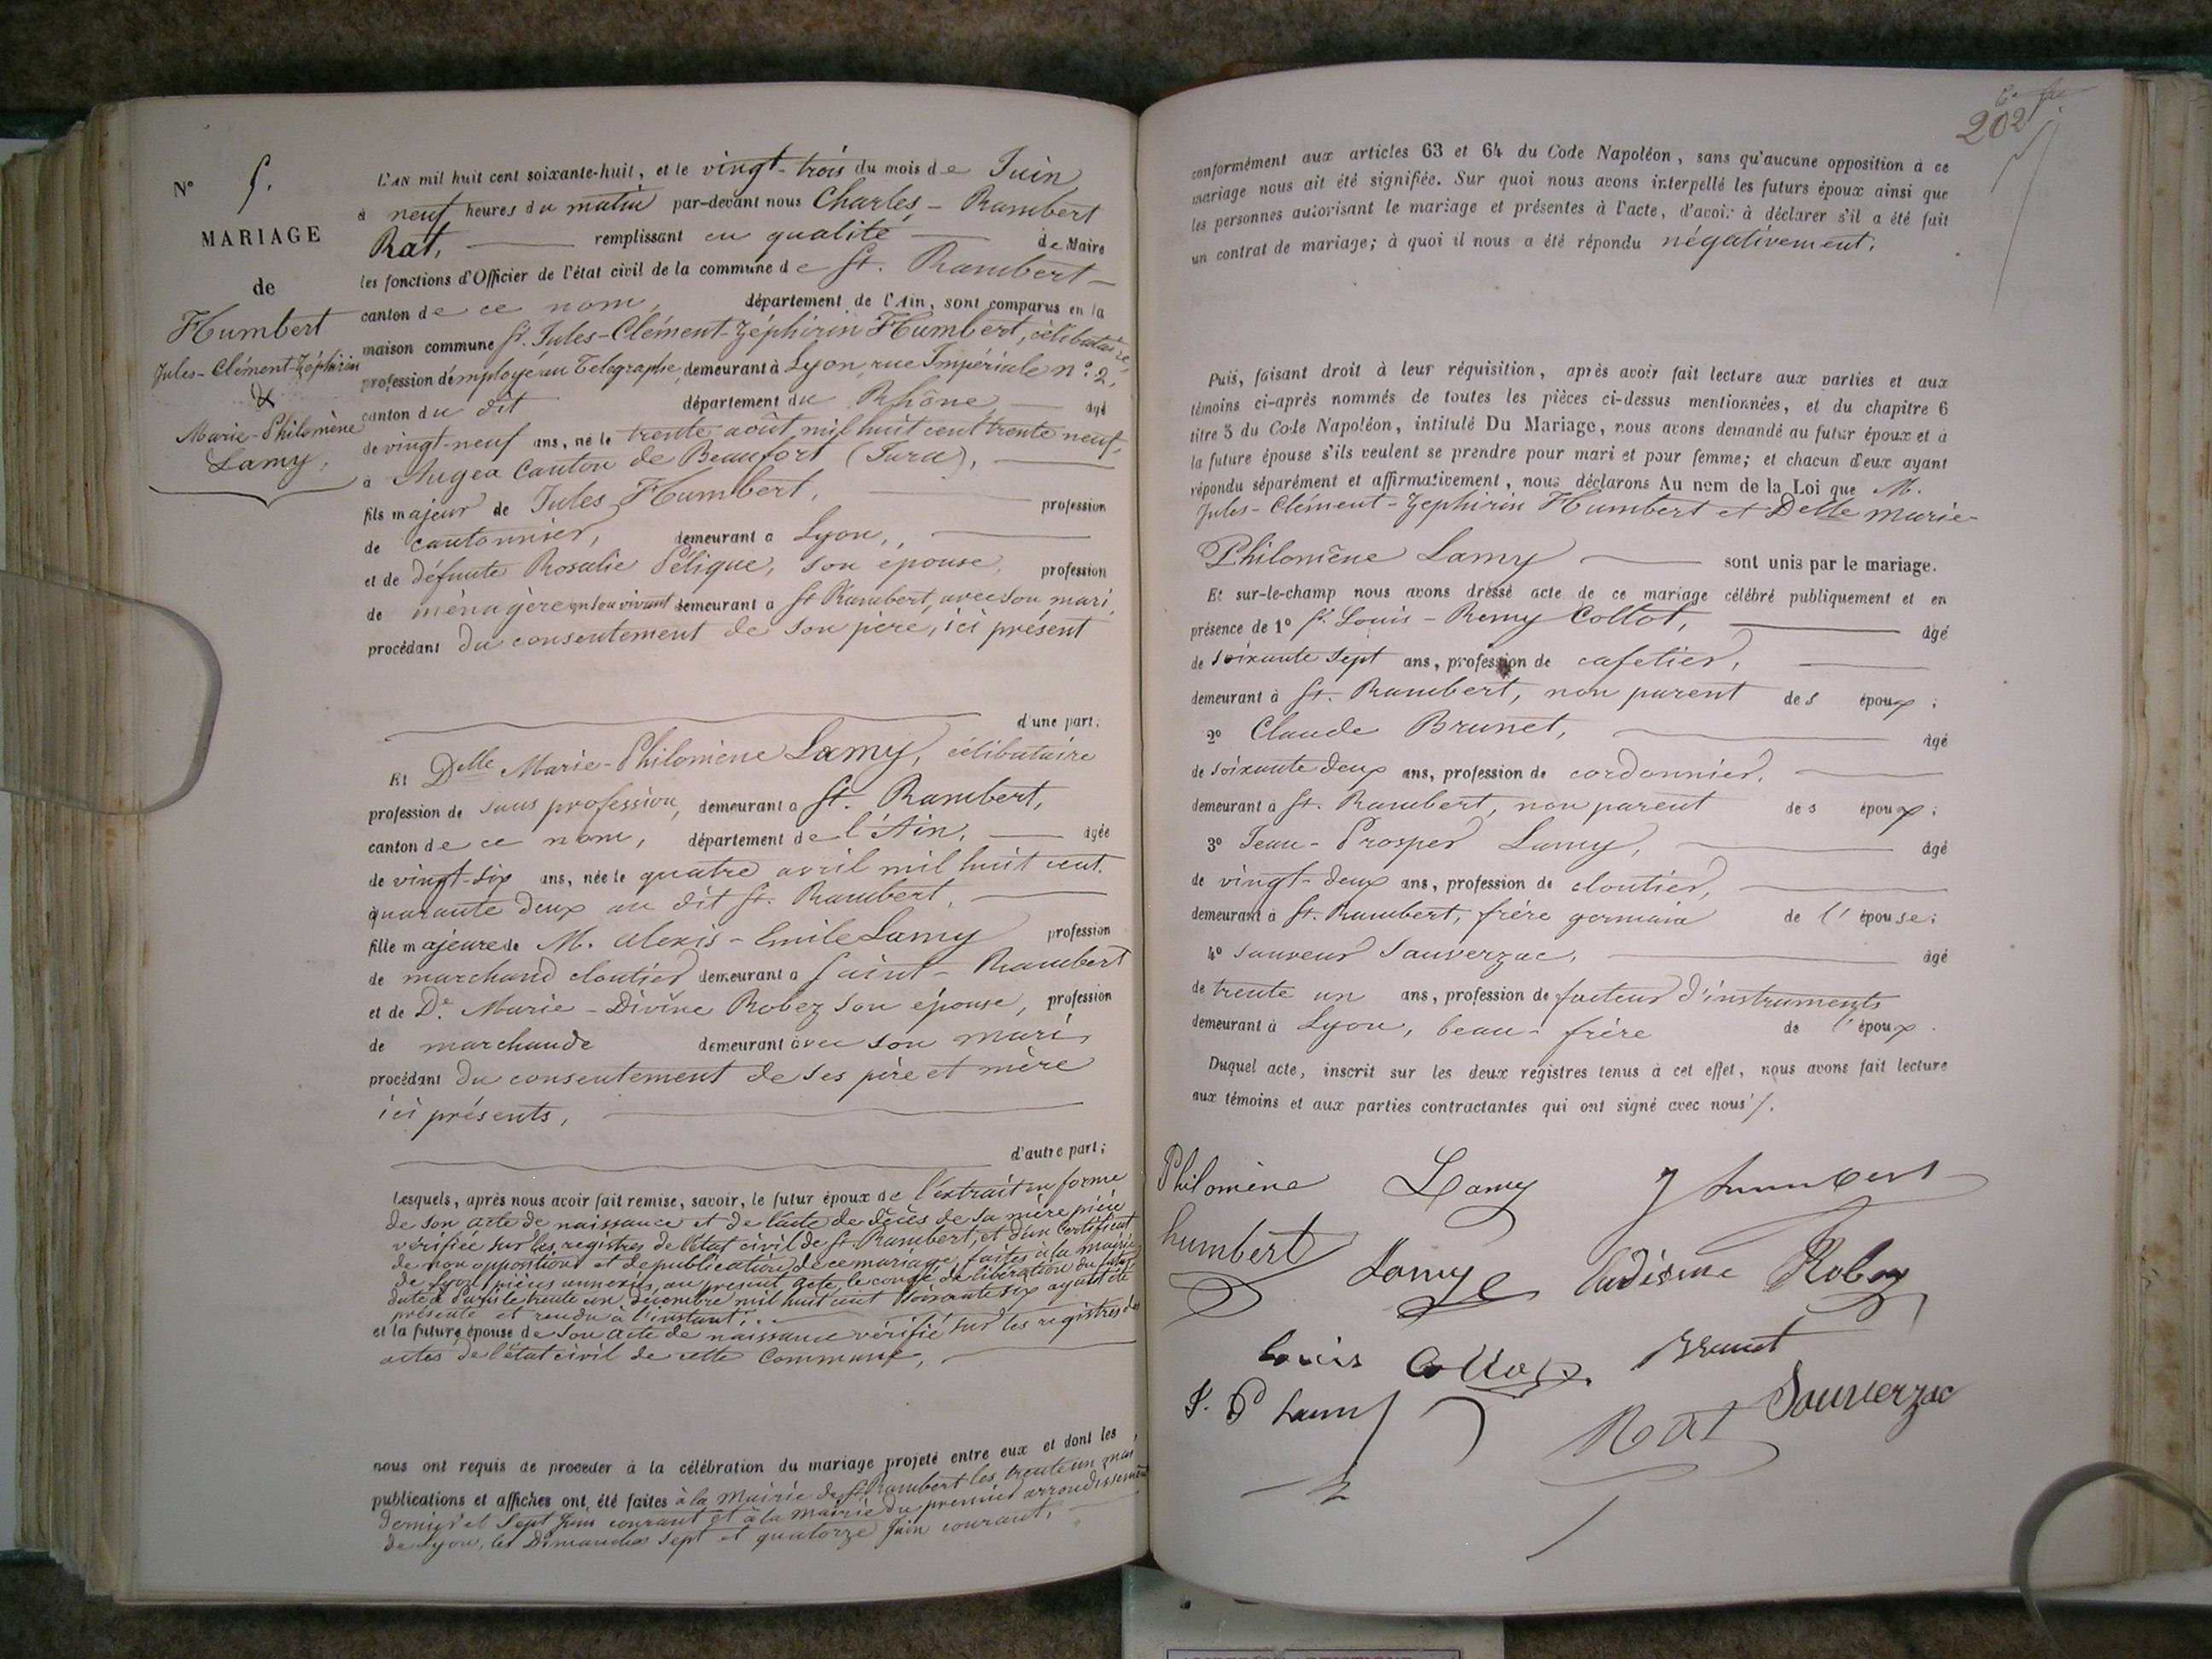 N° 5.
MARIAGE
de
Humbert
Jules-Clément-Zéphirin
&
Marie-Philomène
Lamy,
L'AN mil huit cent soixante-huit, et le vingt-trois du mois de Juin
à neuf heures du matin par-devant nous Charles-Rambert
Rat, remplissant en qualité de Maire
les fonctions d'Officier de l'état civil de la commune de St. Rambert
canton de ce nom, département de l'Ain, sont comparus en la
maison commune Sr. Jules-Clément-Zéphirin Humbert, célibataire,
profession d'employé au Télégraphe, demeurant à Lyon, rue Impériale n°. 2,
canton du dit département du Rhône âgé
de vingt-neuf ans, né le trente août mil huit cent trente neuf,
à Augea Canton de Beaufort (Jura),
fils majeur de Jules Humbert, profession
de cantonnier, demeurant à Lyon,
et de défunte Rosalie Pélique, son épouse, profession
de ménagère en son vivant demeurant à St Rambert, avec son mari,
procédant du consentement de son père, ici présent
d'une part;
Et Delle Marie-Philomène Lamy, célibataire
profession de sans profession, demeurant à St. Rambert,
canton de ce nom, département de l'Ain, âgée
de vingt-six ans, née le quatre avril mil huit cent
quarante deux au dit St. Rambert,
fille majeure de M. Alexis-Emile Lamy profession
de marchand cloutier demeurant à Saint-Rambert
et de De. Marie-Divine Robez son épouse, profession
de marchande demeurant avec son mari
procédant du consentement de ses père et mère
ici présents,
d'autre part;
Lesquels, après nous avoir fait remise, savoir, le futur époux de l'extrait en forme
de son acte de naissance et de l'acte de décès de sa mère pièce
vérifiée sur les registres de l'état civil de St. Rambert, et d'un Certificat
de non opposition et de publication de ce mariage faites à la mairie
de Lyon, pièces annexées au présent acte, le congé de libération du futur
daté à Paris le trente un décembre mil huit cent soixante six ayant été
présenté et rendu à l'instant;
et la future épouse de son acte de naissance vérifié sur les registres des
actes de l'état civil de cette Commune,
nous ont requis de procéder à la célébration du mariage projeté entre eux et dont les
publications et affiches ont été faites à la Mairie de St Rambert les trente un mai
dernier et sept Juin courant et à la Mairie du premier arrondissement
de Lyon, les Dimanches sept et quatorze Juin courant,
202
conformément aux articles 63 et 64 du Code Napoléon, sans qu'aucune opposition à ce
mariage nous ait été signifiée. Sur quoi nous avons interpellé les futurs époux ainsi que
les personnes autorisant le mariage et présentes à l'acte, d'avoir à déclarer s'il a été fait
un contrat de mariage; à quoi il nous a été répondu négativement.
Puis, faisant droit à leur réquisition, après avoir fait lecture aux parties et aux
témoins ci-après nommés de toutes les pièces ci-dessus mentionnées, et du chapitre 6
titre 5 du Code Napoléon, intitulé Du Mariage, nous avons demandé au futur époux et à
la future épouse s'ils veulent se prendre pour mari et pour femme; et chacun d'eux ayant
répondu séparément et affirmativement, nous déclarons Au nom de la Loi que M.
Jules-Clément-Zéphirin Humbert et Delle Marie-
Philomène Lamy sont unis par le mariage.
Et sur-le-champ nous avons dressé acte de ce mariage célébré publiquement et en
présence de 1° Sr. Louis-Remy Collot, âgé
de soixante sept ans, profession de cafetier,
demeurant à St. Rambert, non parent des époux;
2° Claude Brunet, âgé
de soixante deux ans, profession de cordonnier,
demeurant à St. Rambert, non parent des époux;
3° Jean-Prosper Lamy, âgé
de vingt-deux ans, profession de cloutier,
demeurant à St. Rambert, frère germain de l'épouse;
4° Sauveur Sauverzac, âgé
de trente un ans, profession de facteur d'instruments
demeurant à Lyon, beau-frère de l'époux.
Duquel acte, inscrit sur les deux registres tenus à cet effet, nous avons fait lecture
aux témoins et aux parties contractantes qui ont signé avec nous ./.
Philomène Lamy J humbert
humbert Lamy Robez
Louis Collot Brunet
J. P Lamy Rat Sauverzac